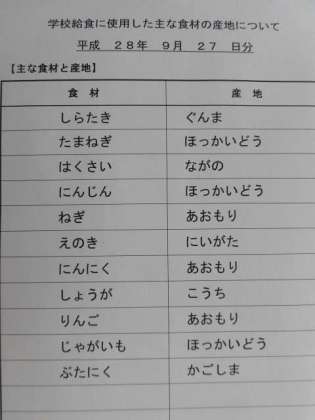 学校給食に使用した主な食材の産地について
平成 28年 9月 27 日分
【主な食材と産地】
食 材 産 地
しらたき ぐんま
たまねぎ ほっかいどう
はくさい ながの
にんじん ほっかいどう
ねぎ あおもり
えのき にいがた
にんにく あおもり
しょうが こうち
りんご あおもり
じゃがいも ほっかいどう
ぶたにく かごしま